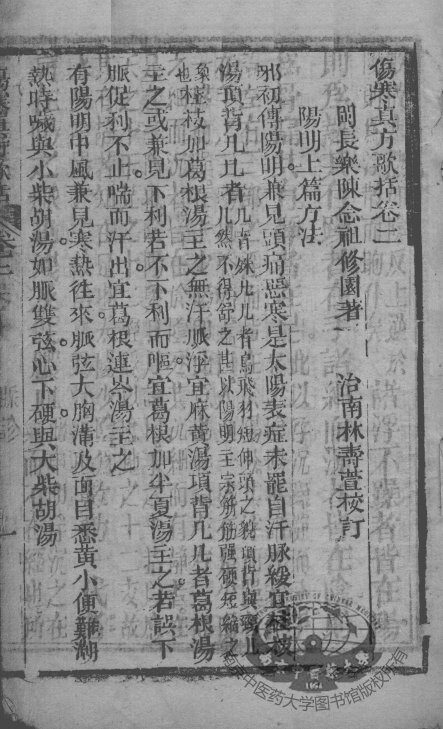 傷寒真方歌括卷二
閩長樂陳念祖修園著　治南林壽萱校訂
陽明上篇方法
邪初傳陽明兼見頭痛惡寒是太陽表症未罷自汗脈緩宜桂枝
湯項背几几者几几者殊几几者鳥飛伸頸之貌項背與頸几几然不得舒之甚以陽明主宗筋筋強硬短縮之
象也桂枝加葛根湯主之無汗脈浮宜麻黄湯項背几几者葛根湯
主之或兼見下利若不下利而嘔宜葛根加半夏湯主之若誤下
脈促利不止喘而汗出宜葛根連芩湯主之
有陽明中風兼見寒熱往來脈弦大胸滿及面目悉黄小便難潮
熱時噦與小柴胡湯如脈雙弦心下硬與大柴胡湯
南京中医药大学图书馆版权所有